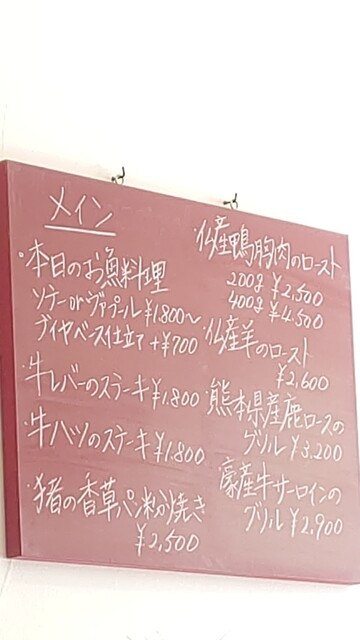 メイン
・本日のお魚料理
ソテーorヴァプール ¥1.800〜
ブイヤベース仕立て +¥700
・牛レバーのステーキ ¥1.800
・牛ハツのステーキ ¥1.800
・猪の香草パン粉焼き
¥2,500
・仏産鴨胸肉のロースト
200g ¥2,500
400g ¥4,500
・仏産羊のロースト
¥2,600
・熊本県産鹿ロースの
グリル ¥3,200
・豪産牛サーロインの
グリル ¥2,900